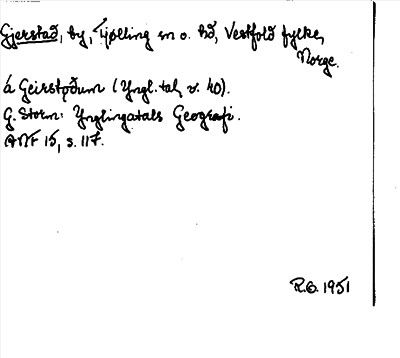 Gjerstað, by, Tjølling sn o. hd, Vestfold fylke,
Norge.
á Geirstǫðum (Yngl.tal, v. 40).
G. Storm: Ynglingatals Geografi.
ANF 15, s. 117.
R.O. 1951